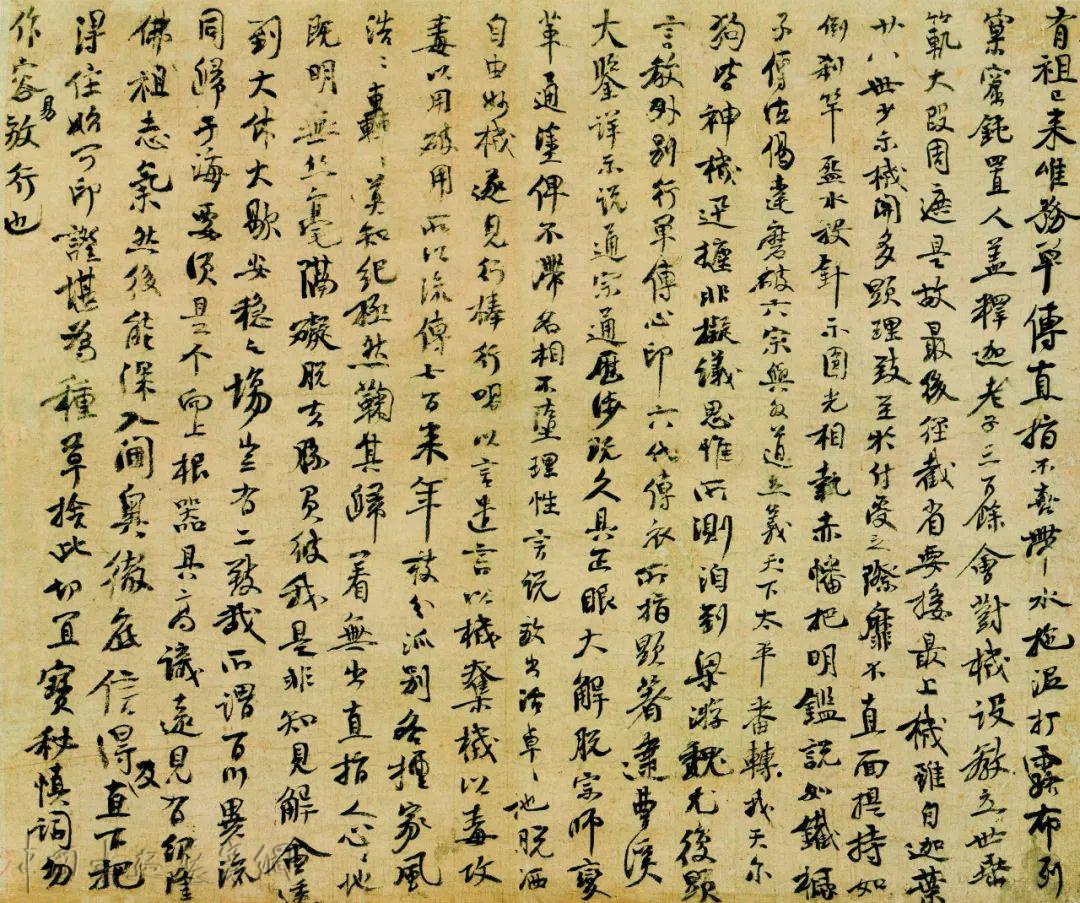 有祖已來唯務單傳直指不喜帶水拖泥打露布列
窠窟鈍置人蓋釋迦老子三百餘會對機設教立世垂
範大段周遮是故最後徑截省要接最上機雖自迦葉
廿八世少示機關多顯理致至於付受之際靡不直面提持如
倒剎竿盌水投針示圓光相執赤幡把明鑑說如鐵橛
子傳法偈達磨破六宗與外道立義天下太平番轉我天尔
狗皆神機迅捷非擬議思惟所測洎到梁游魏尤復顯
言教外別行單傳心印六代傳衣所指顯著逮曹溪
大鑒詳示說通宗通歷涉既久具正眼大解脫宗師變
革通塗俾不滯名相不墮理性言說放出活卓〻地脫洒
自由妙機遂見行棒行喝以言遣言以機奪機以毒攻
毒以用破用所以流傳七百來年枝分派別各擅家風
浩〻轟〻莫知紀極然鞠其歸著無出直指人心〻地
既明無絲毫隔礙脫去勝負彼我是非知見解會透
到大休大歇安穩之場豈有二致哉所謂百川異流
同歸于海要須是个向上根器具高識遠見有紹隆
佛祖志氣然後能深入閫奧徹底信得及直下把
得住始可印證堪為種草捨此切宜寶秘慎詞勿
作容易放行也